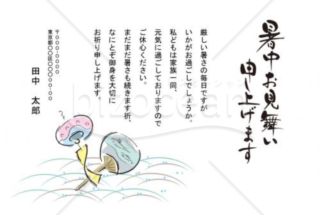 暑中お見舞い
申し上げます
厳しい暑さの毎日ですが
いかがお過ごしでしょうか。
私どもは家族一同、
元気に過ごしておりますので
ご休心ください。
まだまだ暑さも続きます折、
なにとぞ御身を大切に
お祈り申し上げます。
〒〇〇〇-〇〇〇〇
東京都〇〇区〇〇〇〇-〇〇
田中 太郎